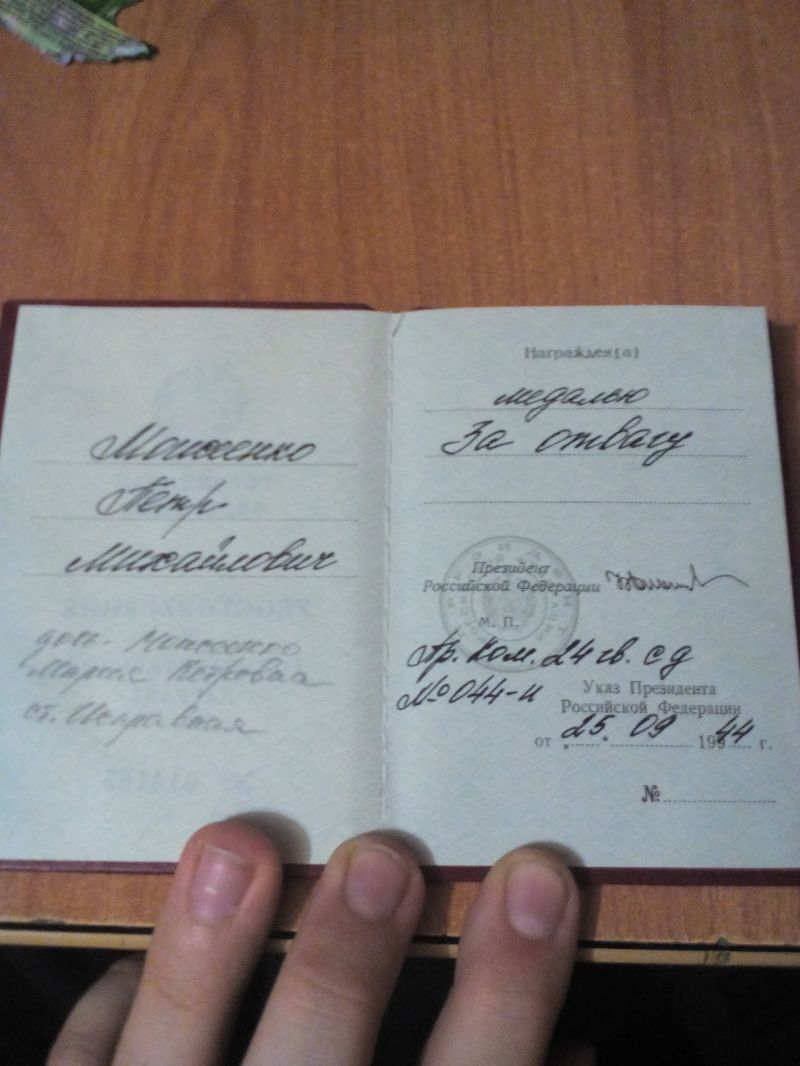 Петр
Михайлович
дочь-
Мария Петровна
ст. Исправная
Награжден(а)
медалью
За отвагу
Президент
Российской Федерации
М. П.
Пр. Ком. 24 гв. сд
№ 044-н
Указ Президента
Российской Федерации
от „25“ 09 19944 г.
№